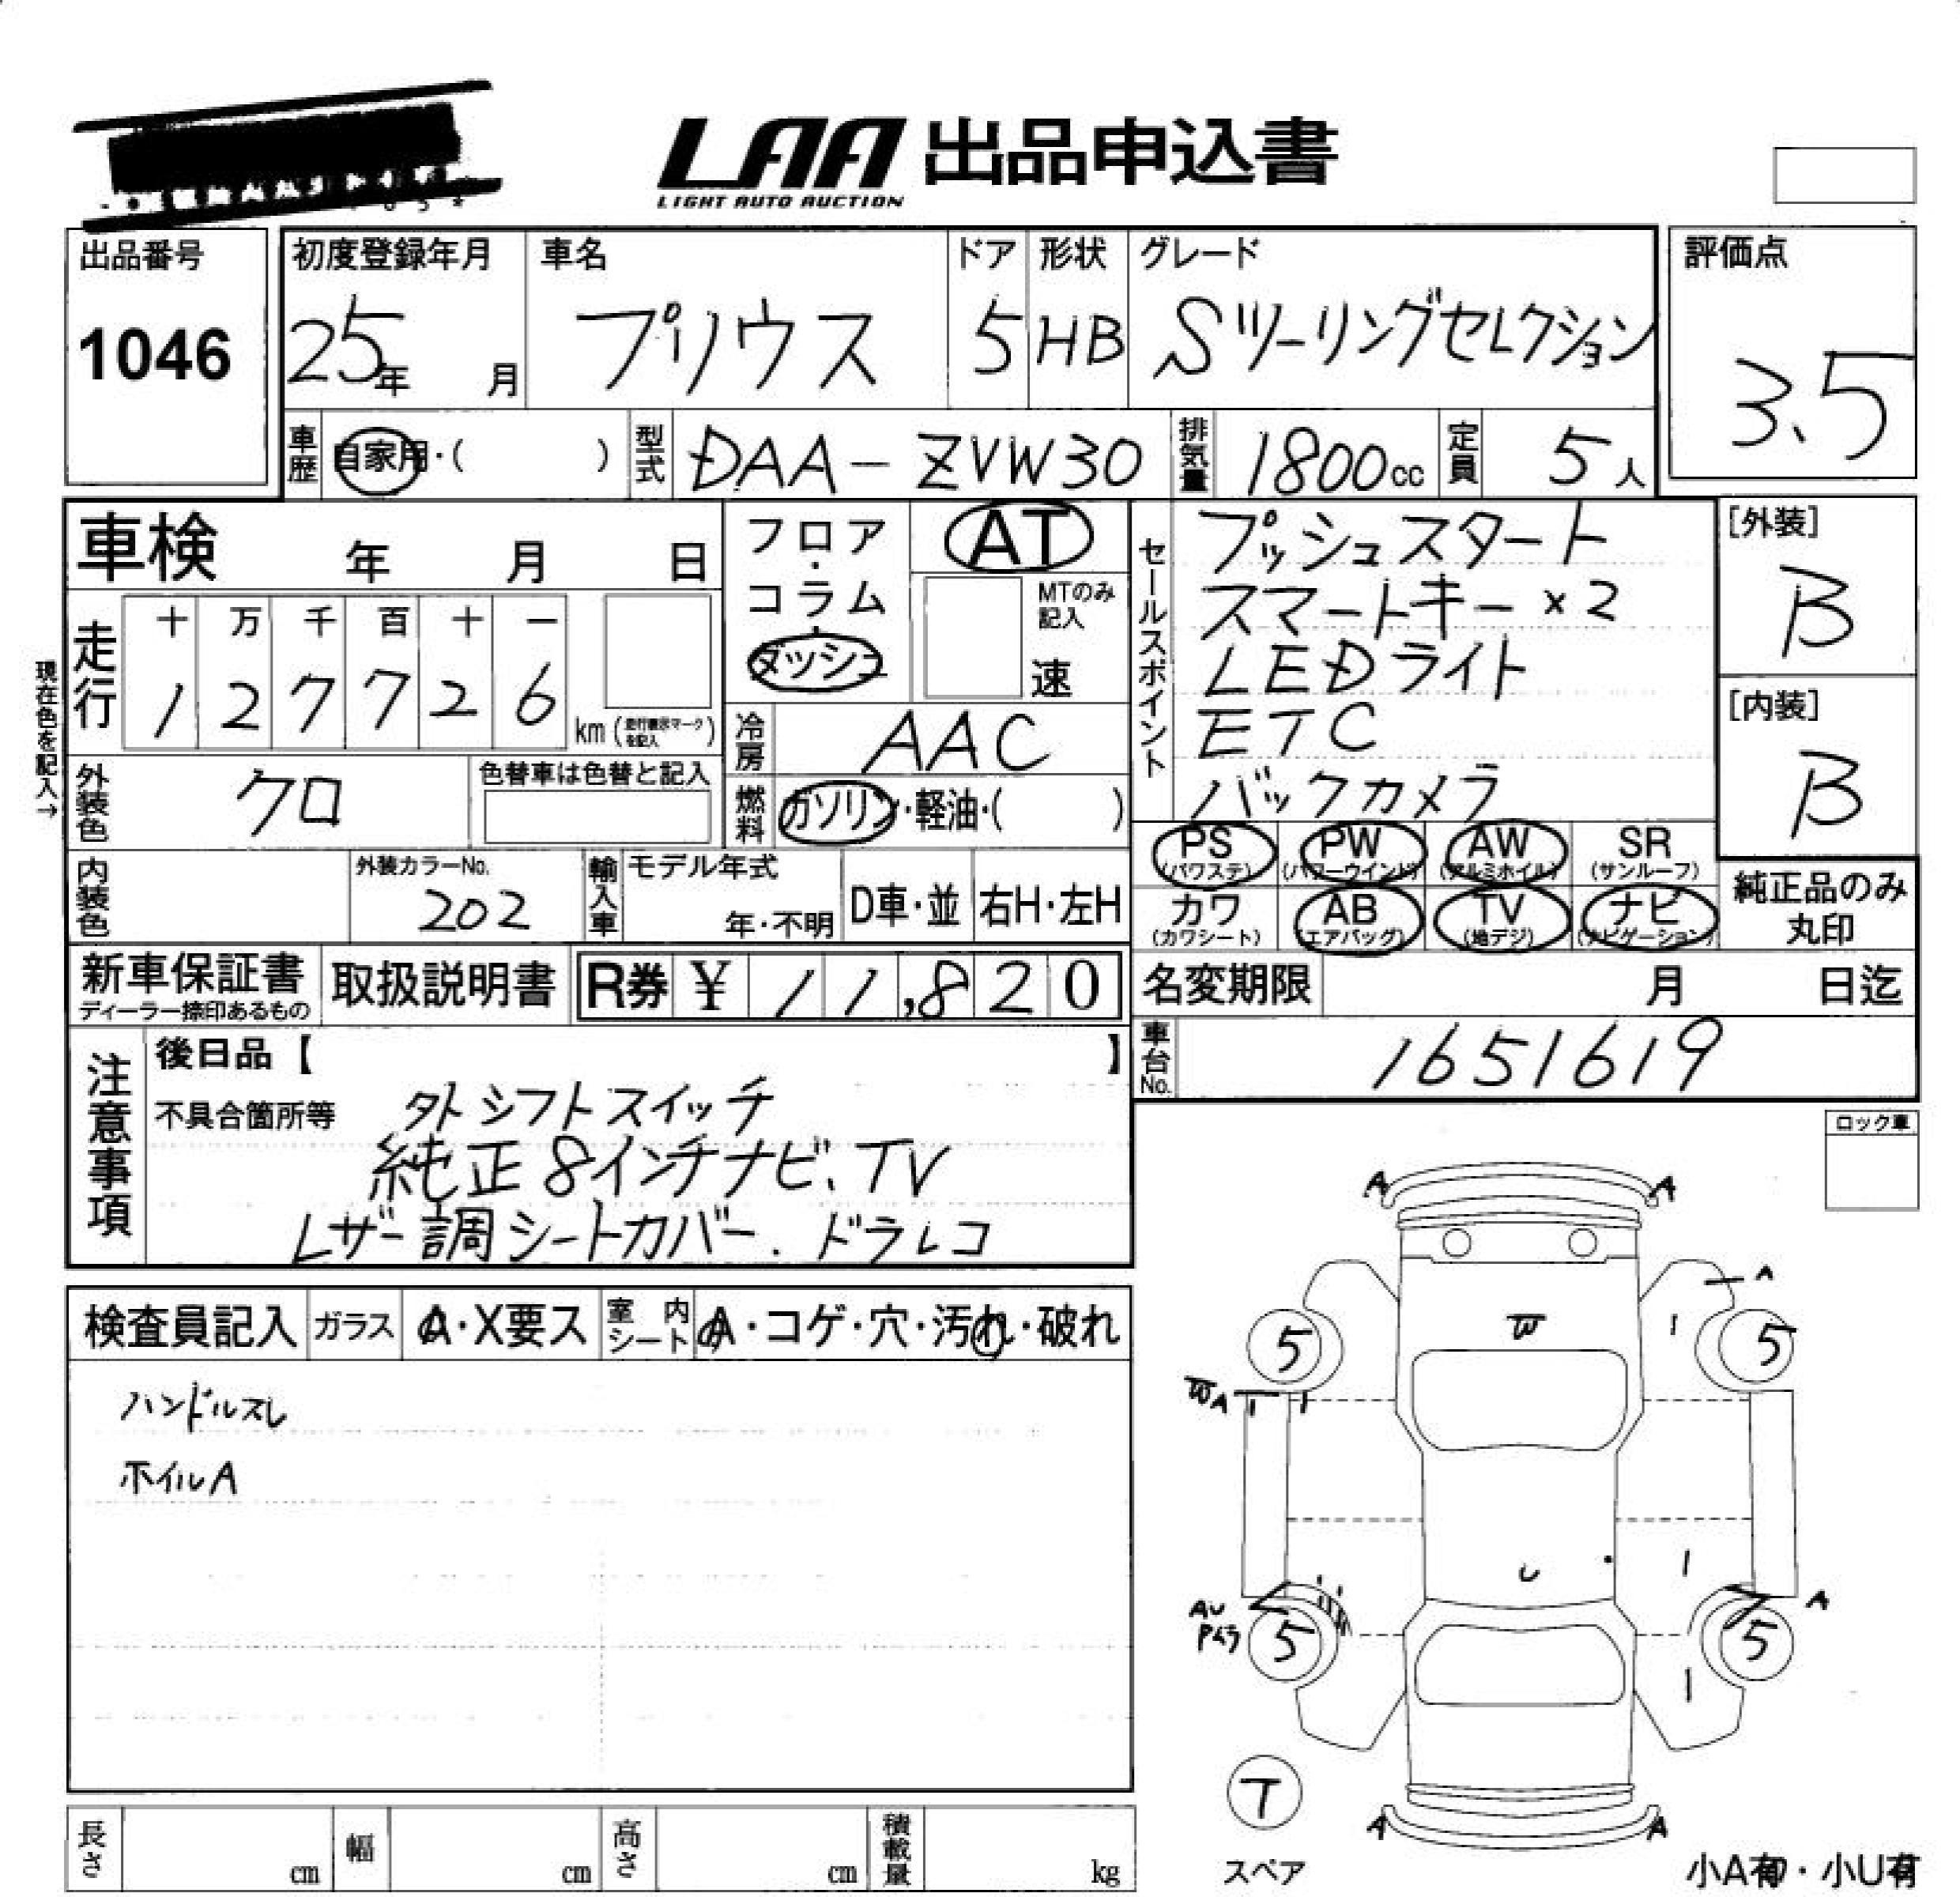 LAA 出品申込書
LIGHT AUTO AUCTION
出品番号
1046
初度登録年月
25年 月
車名
プリウス
ドア
5
形状
HB
グレード
Sツーリングセレクション
評価点
3.5
車歴
自家用・( )
型式
DAA-ZVW30
排気量
1800cc
定員
5人
車検 年 月 日
フロア・コラム・ダッシュ
AT
MTのみ記入
速
現在色を記入→
走行
十 万 千 百 十 一
1 2 7 7 2 6
km (走行表示マークを記入)
冷房
AAC
燃料
ガソリン・軽油・( )
外装色
クロ
色替車は色替と記入
内装色
外装カラーNo.
202
輸入車
モデル年式
年・不明
D車・並
右H・左H
セールスポイント
プッシュスタート
スマートキー×2
LEDライト
ETC
バックカメラ
[外装]
B
[内装]
B
PS (パワステ)
PW (パワーウインド)
AW (アルミホイル)
SR (サンルーフ)
カワ (カワシート)
AB (エアバッグ)
TV (地デジ)
ナビ (ナビゲーション)
純正品のみ丸印
新車保証書
ディーラー捺印あるもの
取扱説明書
R券 ¥ 11,820
名変期限 月 日迄
車台No.
1651619
注意事項
後日品【 】
不具合箇所等
外シフトスイッチ
純正8インチナビ、TV
レザー調シートカバー. ドラレコ
ロック車
検査員記入
ガラス
A・X要ス
室内シート
A・コゲ・穴・汚れ・破れ
ハンドルスレ
ホイルA
A A
A
W
5 5
WA
U
AU
A
5 5
T
スペア
A A
長さ cm
幅 cm
高さ cm
積載量 kg
小A有・小U有